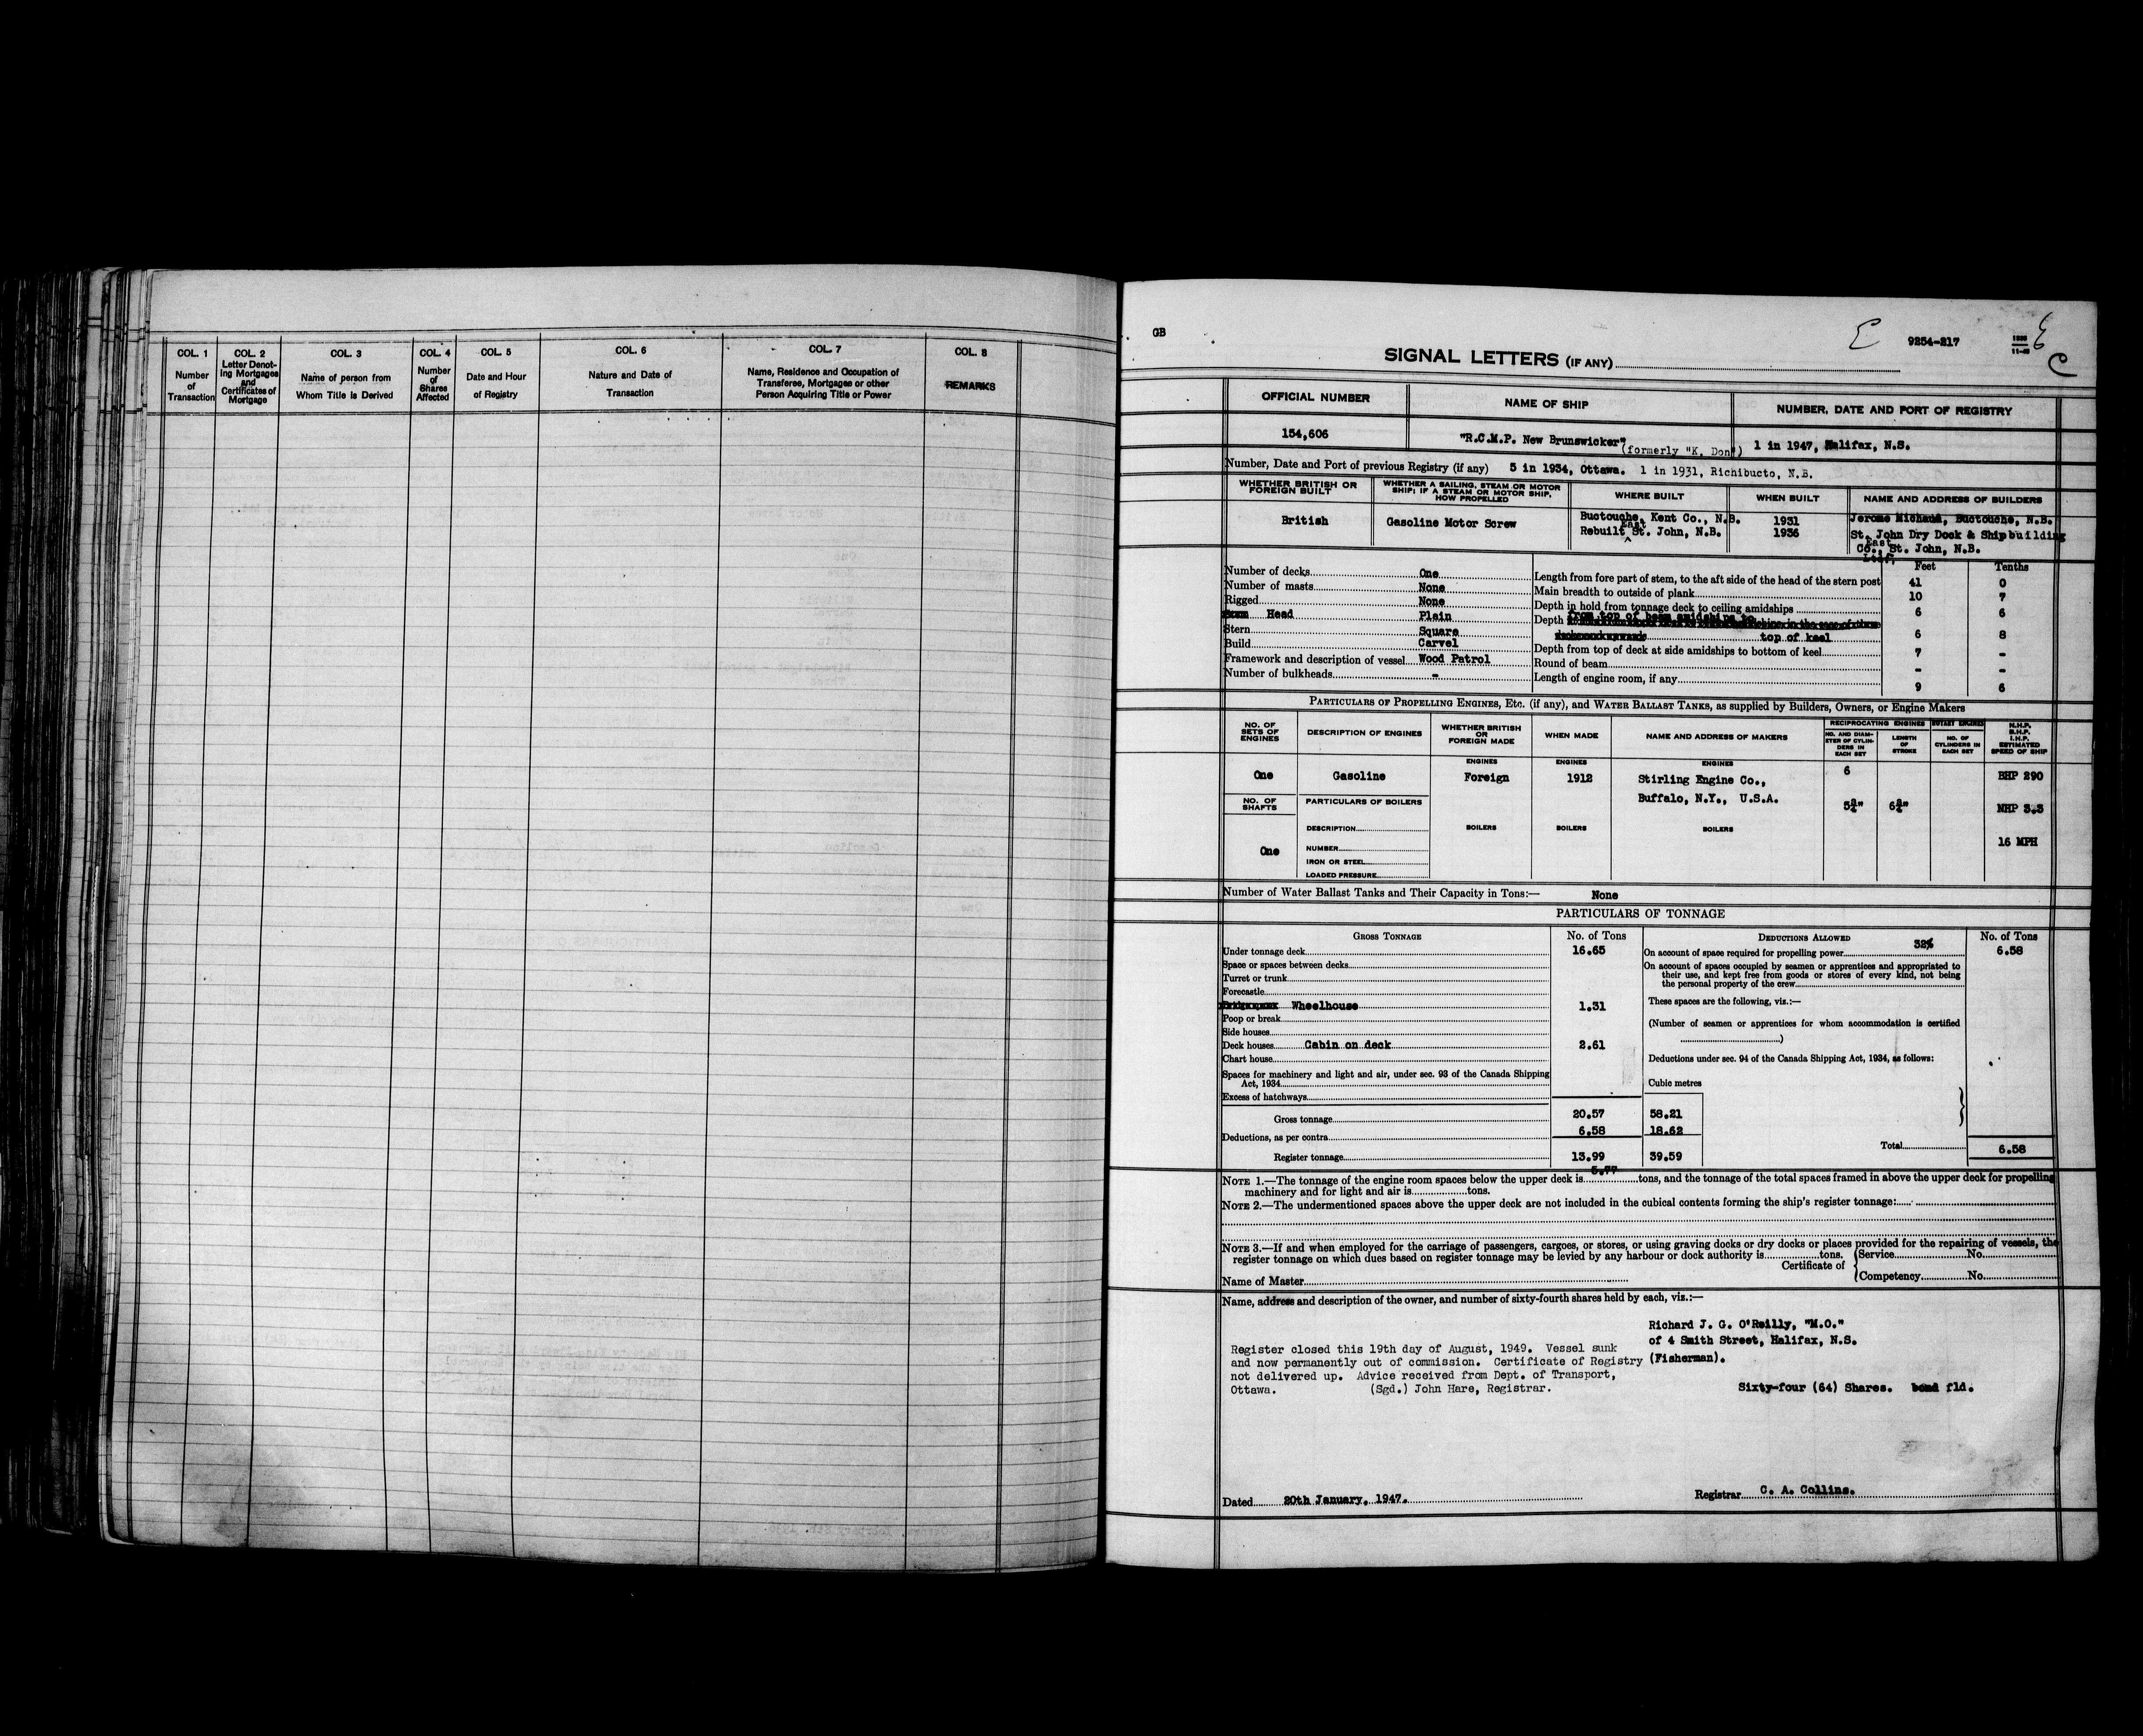 COL. 1
Number
of
Transaction
COL. 2
Letter Denot-
ing Mortgages
and
Certificates of
Mortgage
COL. 3
Name of person from
Whom Title is Derived
COL. 4
Number
of
Shares
Affected
COL. 5
Date and Hour
of Registry
COL. 6
Nature and Date of
Transaction
COL. 7
Name, Residence and Occupation of
Transferee, Mortgagee or other
Person Acquiring Title or Power
COL. 8
REMARKS
GB
9254-217
SIGNAL LETTERS (IF ANY)
OFFICIAL NUMBER
NAME OF SHIP
NUMBER, DATE AND PORT OF REGISTRY
154,606
"R.C.M.P. New Brunswicker"
(formerly "K. Don")
1 in 1947, Halifax, N.S.
Number, Date and Port of previous Registry (if any) 5 in 1934, Ottawa. 1 in 1931, Richibucto, N.B.
WHETHER BRITISH OR
FOREIGN BUILT
WHETHER A SAILING, STEAM OR MOTOR
SHIP; IF A STEAM OR MOTOR SHIP,
HOW PROPELLED
WHERE BUILT
WHEN BUILT
NAME AND ADDRESS OF BUILDERS
British
Gasoline Motor Screw
Buctouche, Kent Co., N.B.
Rebuilt East St. John, N.B.
1931
1936
Jerome Michaud, Buctouche, N.B.
St. John Dry Dock & Shipbuilding
Co., Ltd., East St. John, N.B.
Feet Tenths
Number of decks One
Number of masts None
Rigged None
Head Plain
Stern Square
Build Carvel
Framework and description of vessel Wood Patrol
Number of bulkheads -
Length from fore part of stem, to the aft side of the head of the stern post 41 0
Main breadth to outside of plank 10 7
Depth in hold from tonnage deck to ceiling amidships 6 6
Depth from top of beam amidships to
top of keel 6 8
Depth from top of deck at side amidships to bottom of keel 7 -
Round of beam - -
Length of engine room, if any 9 6
PARTICULARS OF PROPELLING ENGINES, ETC. (if any), and WATER BALLAST TANKS, as supplied by Builders, Owners, or Engine Makers
NO. OF
SETS OF
ENGINES
DESCRIPTION OF ENGINES
WHETHER BRITISH
OR
FOREIGN MADE
WHEN MADE
NAME AND ADDRESS OF MAKERS
RECIPROCATING ENGINES
ROTARY ENGINES
NO. AND DIAM-
ETER OF CYLIN-
DERS IN
EACH SET
LENGTH
OF
STROKE
NO. OF
CYLINDERS IN
EACH SET
N.H.P.
B.H.P.
I.H.P.
ESTIMATED
SPEED OF SHIP
ENGINES
ENGINES
ENGINES
One
Gasoline
Foreign
1912
Stirling Engine Co.,
Buffalo, N.Y., U.S.A.
6
BHP 290
NHP 3.3
16 MPH
NO. OF
SHAFTS
One
PARTICULARS OF BOILERS
DESCRIPTION
NUMBER
IRON OR STEEL
LOADED PRESSURE
BOILERS
BOILERS
BOILERS
Number of Water Ballast Tanks and Their Capacity in Tons:— None
PARTICULARS OF TONNAGE
GROSS TONNAGE
No. of Tons
DEDUCTIONS ALLOWED
No. of Tons
Under tonnage deck 16.65
Space or spaces between decks
Turret or trunk
Forecastle
Wheelhouse 1.31
Poop or break
Side houses
Deck houses Cabin on deck 2.61
Chart house
Spaces for machinery and light and air, under sec. 93 of the Canada Shipping
Act, 1934
Excess of hatchways
Gross tonnage 20.57 58.21
Deductions, as per contra 6.58 18.62
Register tonnage 13.99 39.59
32%
On account of space required for propelling power 6.58
On account of spaces occupied by seamen or apprentices and appropriated to
their use, and kept free from goods or stores of every kind, not being
the personal property of the crew
These spaces are the following, viz.:—
(Number of seamen or apprentices for whom accommodation is certified
)
Deductions under sec. 94 of the Canada Shipping Act, 1934, as follows:
Cubic metres
Total 6.58
NOTE 1.—The tonnage of the engine room spaces below the upper deck is 5.77 tons, and the tonnage of the total spaces framed in above the upper deck for propelling
machinery and for light and air is tons.
NOTE 2.—The undermentioned spaces above the upper deck are not included in the cubical contents forming the ship's register tonnage:
NOTE 3.—If and when employed for the carriage of passengers, cargoes, or stores, or using graving docks or dry docks or places provided for the repairing of vessels, the
register tonnage on which dues based on register tonnage may be levied by any harbour or dock authority is tons.
Certificate of
Service No.
Competency No.
Name of Master
Name, address and description of the owner, and number of sixty-fourth shares held by each, viz.:—
Richard J. G. O'Reilly, "M.O."
of 4 Smith Street, Halifax, N.S.
(Fisherman).
Sixty-four (64) Shares. bond fld.
Register closed this 19th day of August, 1949. Vessel sunk
and now permanently out of commission. Certificate of Registry
not delivered up. Advice received from Dept. of Transport,
Ottawa. (Sgd.) John Hare, Registrar.
Dated 20th January, 1947.
Registrar C. A. Collins.